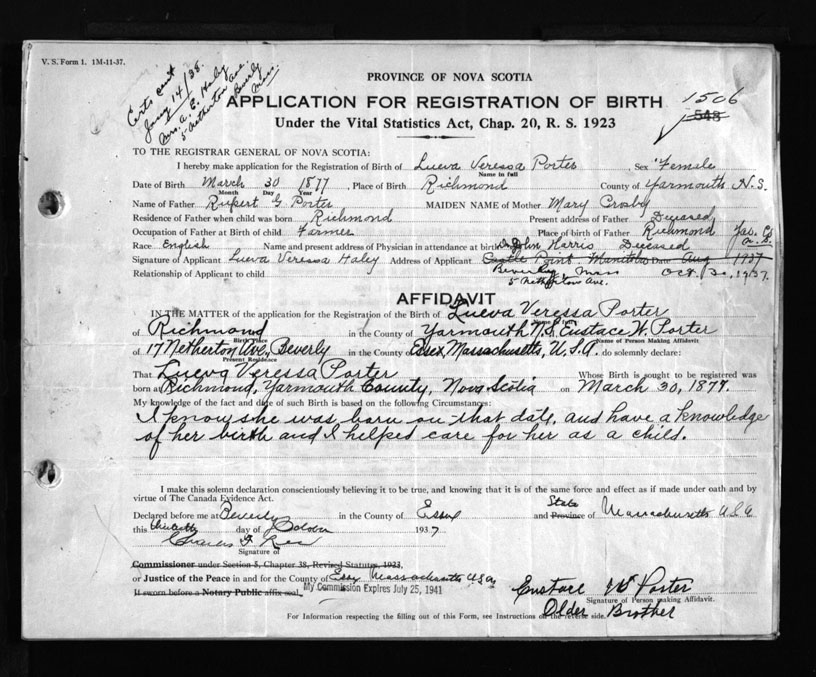 V. S. Form 1. 1M-11-37.
Certs sent
Jany 14/38.
Mrs. A. E. Haley
5 Netherton Ave.
Beverly
Mass.
PROVINCE OF NOVA SCOTIA
APPLICATION FOR REGISTRATION OF BIRTH
1506
548
Under the Vital Statistics Act, Chap. 20, R. S. 1923
TO THE REGISTRAR GENERAL OF NOVA SCOTIA:
I hereby make application for the Registration of Birth of Lueva Veressa Porter, Sex Female
Name in full
Date of Birth March 30 1877, Place of Birth Richmond County of Yarmouth N.S.
Month Day Year
Name of Father Rupert G Porter MAIDEN NAME of Mother Mary Crosby
Residence of Father when child was born Richmond Present address of Father Deceased
Occupation of Father at Birth of child Farmer Place of birth of Father Richmond Yar. Co
N.S.
Race English Name and present address of Physician in attendance at birth Dr John Harris Deceased
Signature of Applicant Lueva Veressa Haley Address of Applicant Castle Point Manitoba Date Aug 1937
Relationship of Applicant to child Beverly, Mass Oct. 1937.
5 Netherton Ave.
AFFIDAVIT
IN THE MATTER of the application for Registration of the Birth of Lueva Veressa Porter
Name in full
of Richmond in the County of Yarmouth N.S. Eustace W. Porter
Birth Place Name of Person Making Affidavit
of 17 Netherton Ave, Beverly in the County of Essex, Massachusetts, U.S.A. do solemnly declare:
Present Residence
That Lueva Veressa Porter Whose Birth is sought to be registered was
born at Richmond, Yarmouth County, Nova Scotia on March 30, 1877.
My knowledge of the fact and date of such Birth is based on the following Circumstances:
I know she was born on that date, and have a knowledge
of her birth and I helped care for her as a child.
I make this solemn declaration conscientiously believing it to be true, and knowing that it is of the same force and effect as if made under oath and by
virtue of The Canada Evidence Act.
State
Declared before me at Beverly in the County of Essex and Province of Massachusetts U.S.A
this day of October 1937
Charles F.
Signature of
Commissioner under Section 5, Chapter 38, Revised Statutes, 1923,
or Justice of the Peace in and for the County of Essex Massachusetts U.S.A.
If sworn before a Notary Public affix seal.
My Commission Expires July 25, 1941
Eustace W Porter
Signature of Person making Affidavit.
Older Brother
For Information respecting the filling out of this Form, see Instructions on the reverse side.